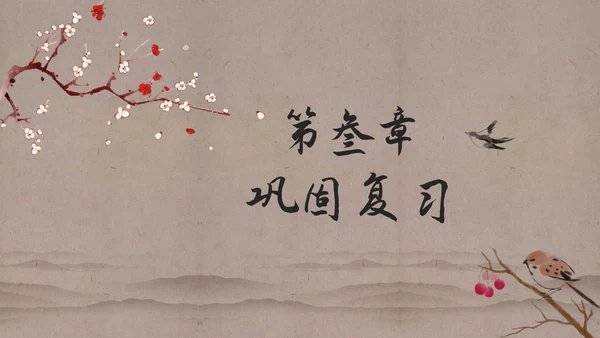 第叁章
巩固复习